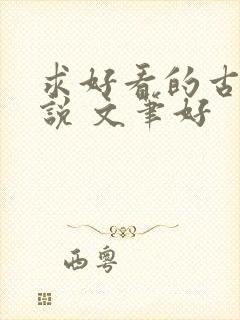 求好看的古
説 文筆好
西粵